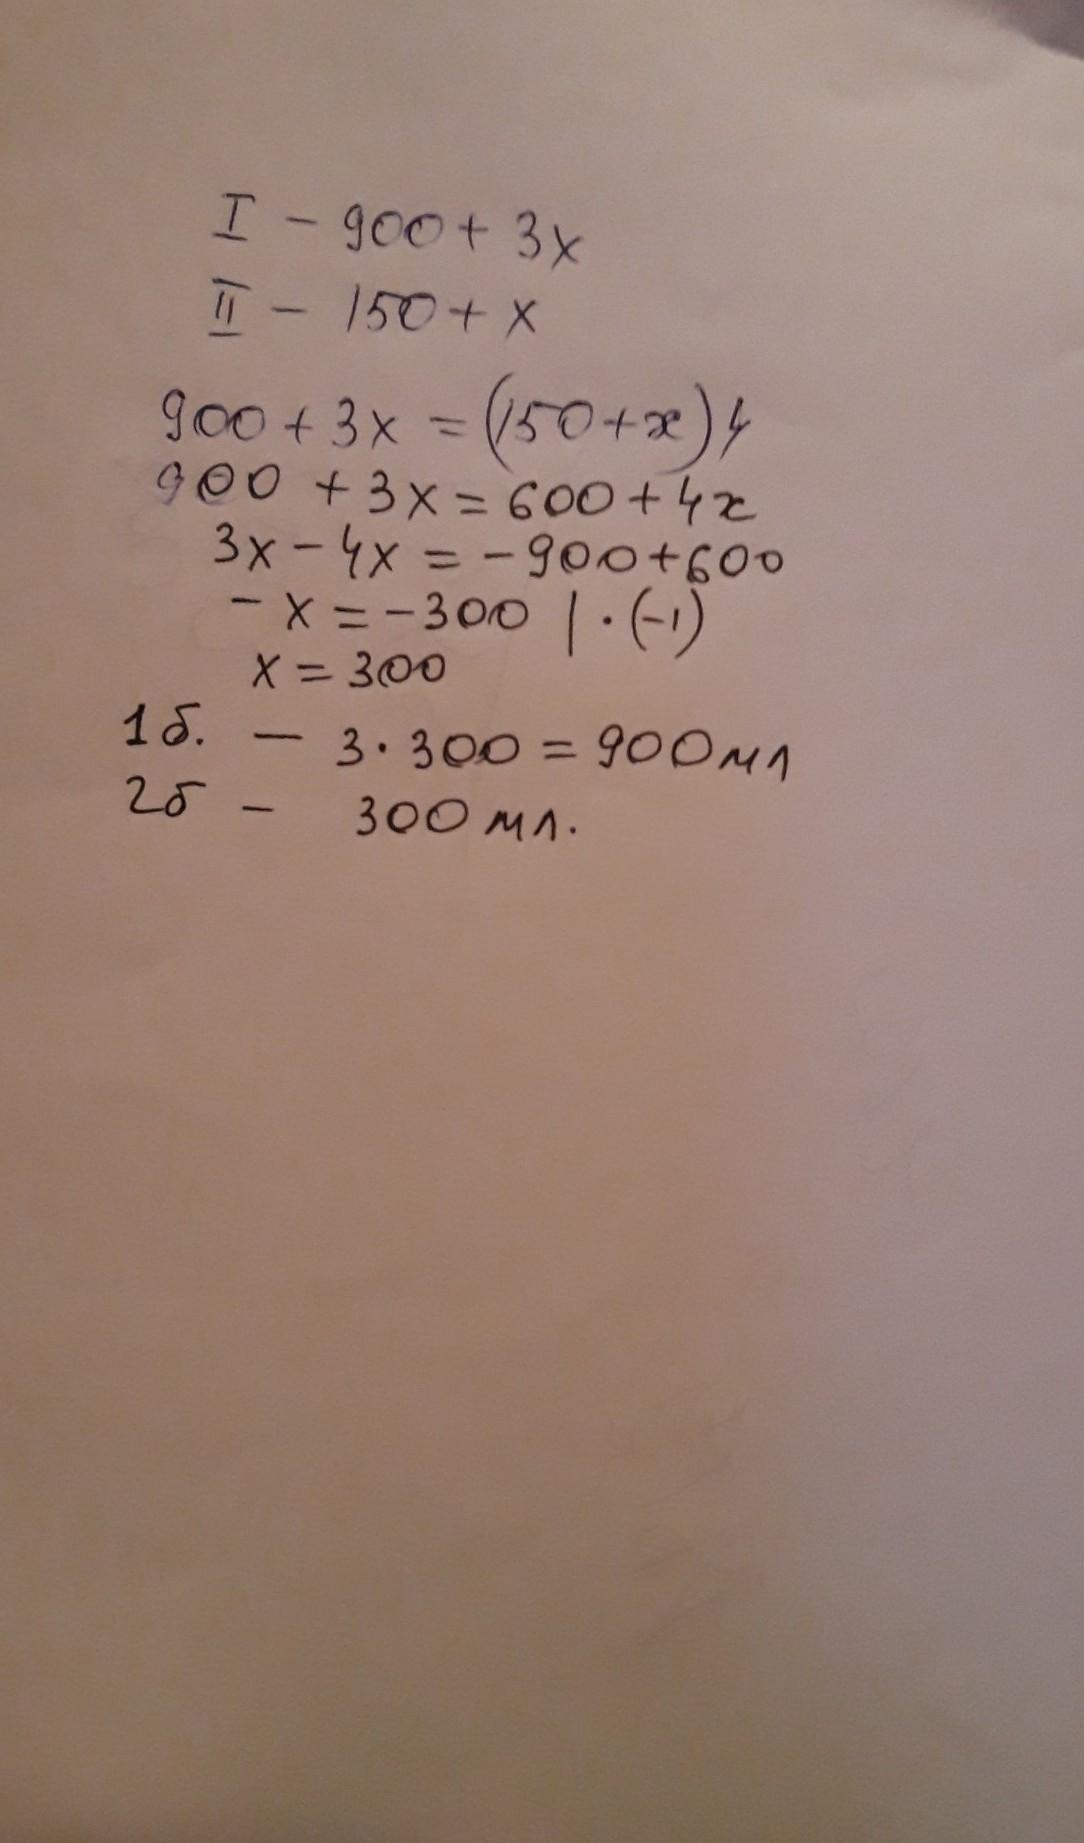 I - 900 + 3x
II - 150 + x
900 + 3x = (150 + x) 4
900 + 3x = 600 + 4x
3x - 4x = -900 + 600
- x = -300 | · (-1)
x = 300
1б. - 3 · 300 = 900 мл
2б - 300 мл.